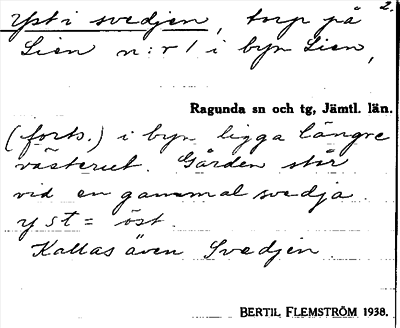 2.
Yst i svedjen, torp på
Lien n:r 1 i byn Lien,
Ragunda sn och tg, Jämtl. län.
(forts.) i byn ligga längre
västerut. Gården står
vid en gammal svedja.
yst = öst.
Kallas även Svedjen.
BERTIL FLEMSTRÖM 1938.